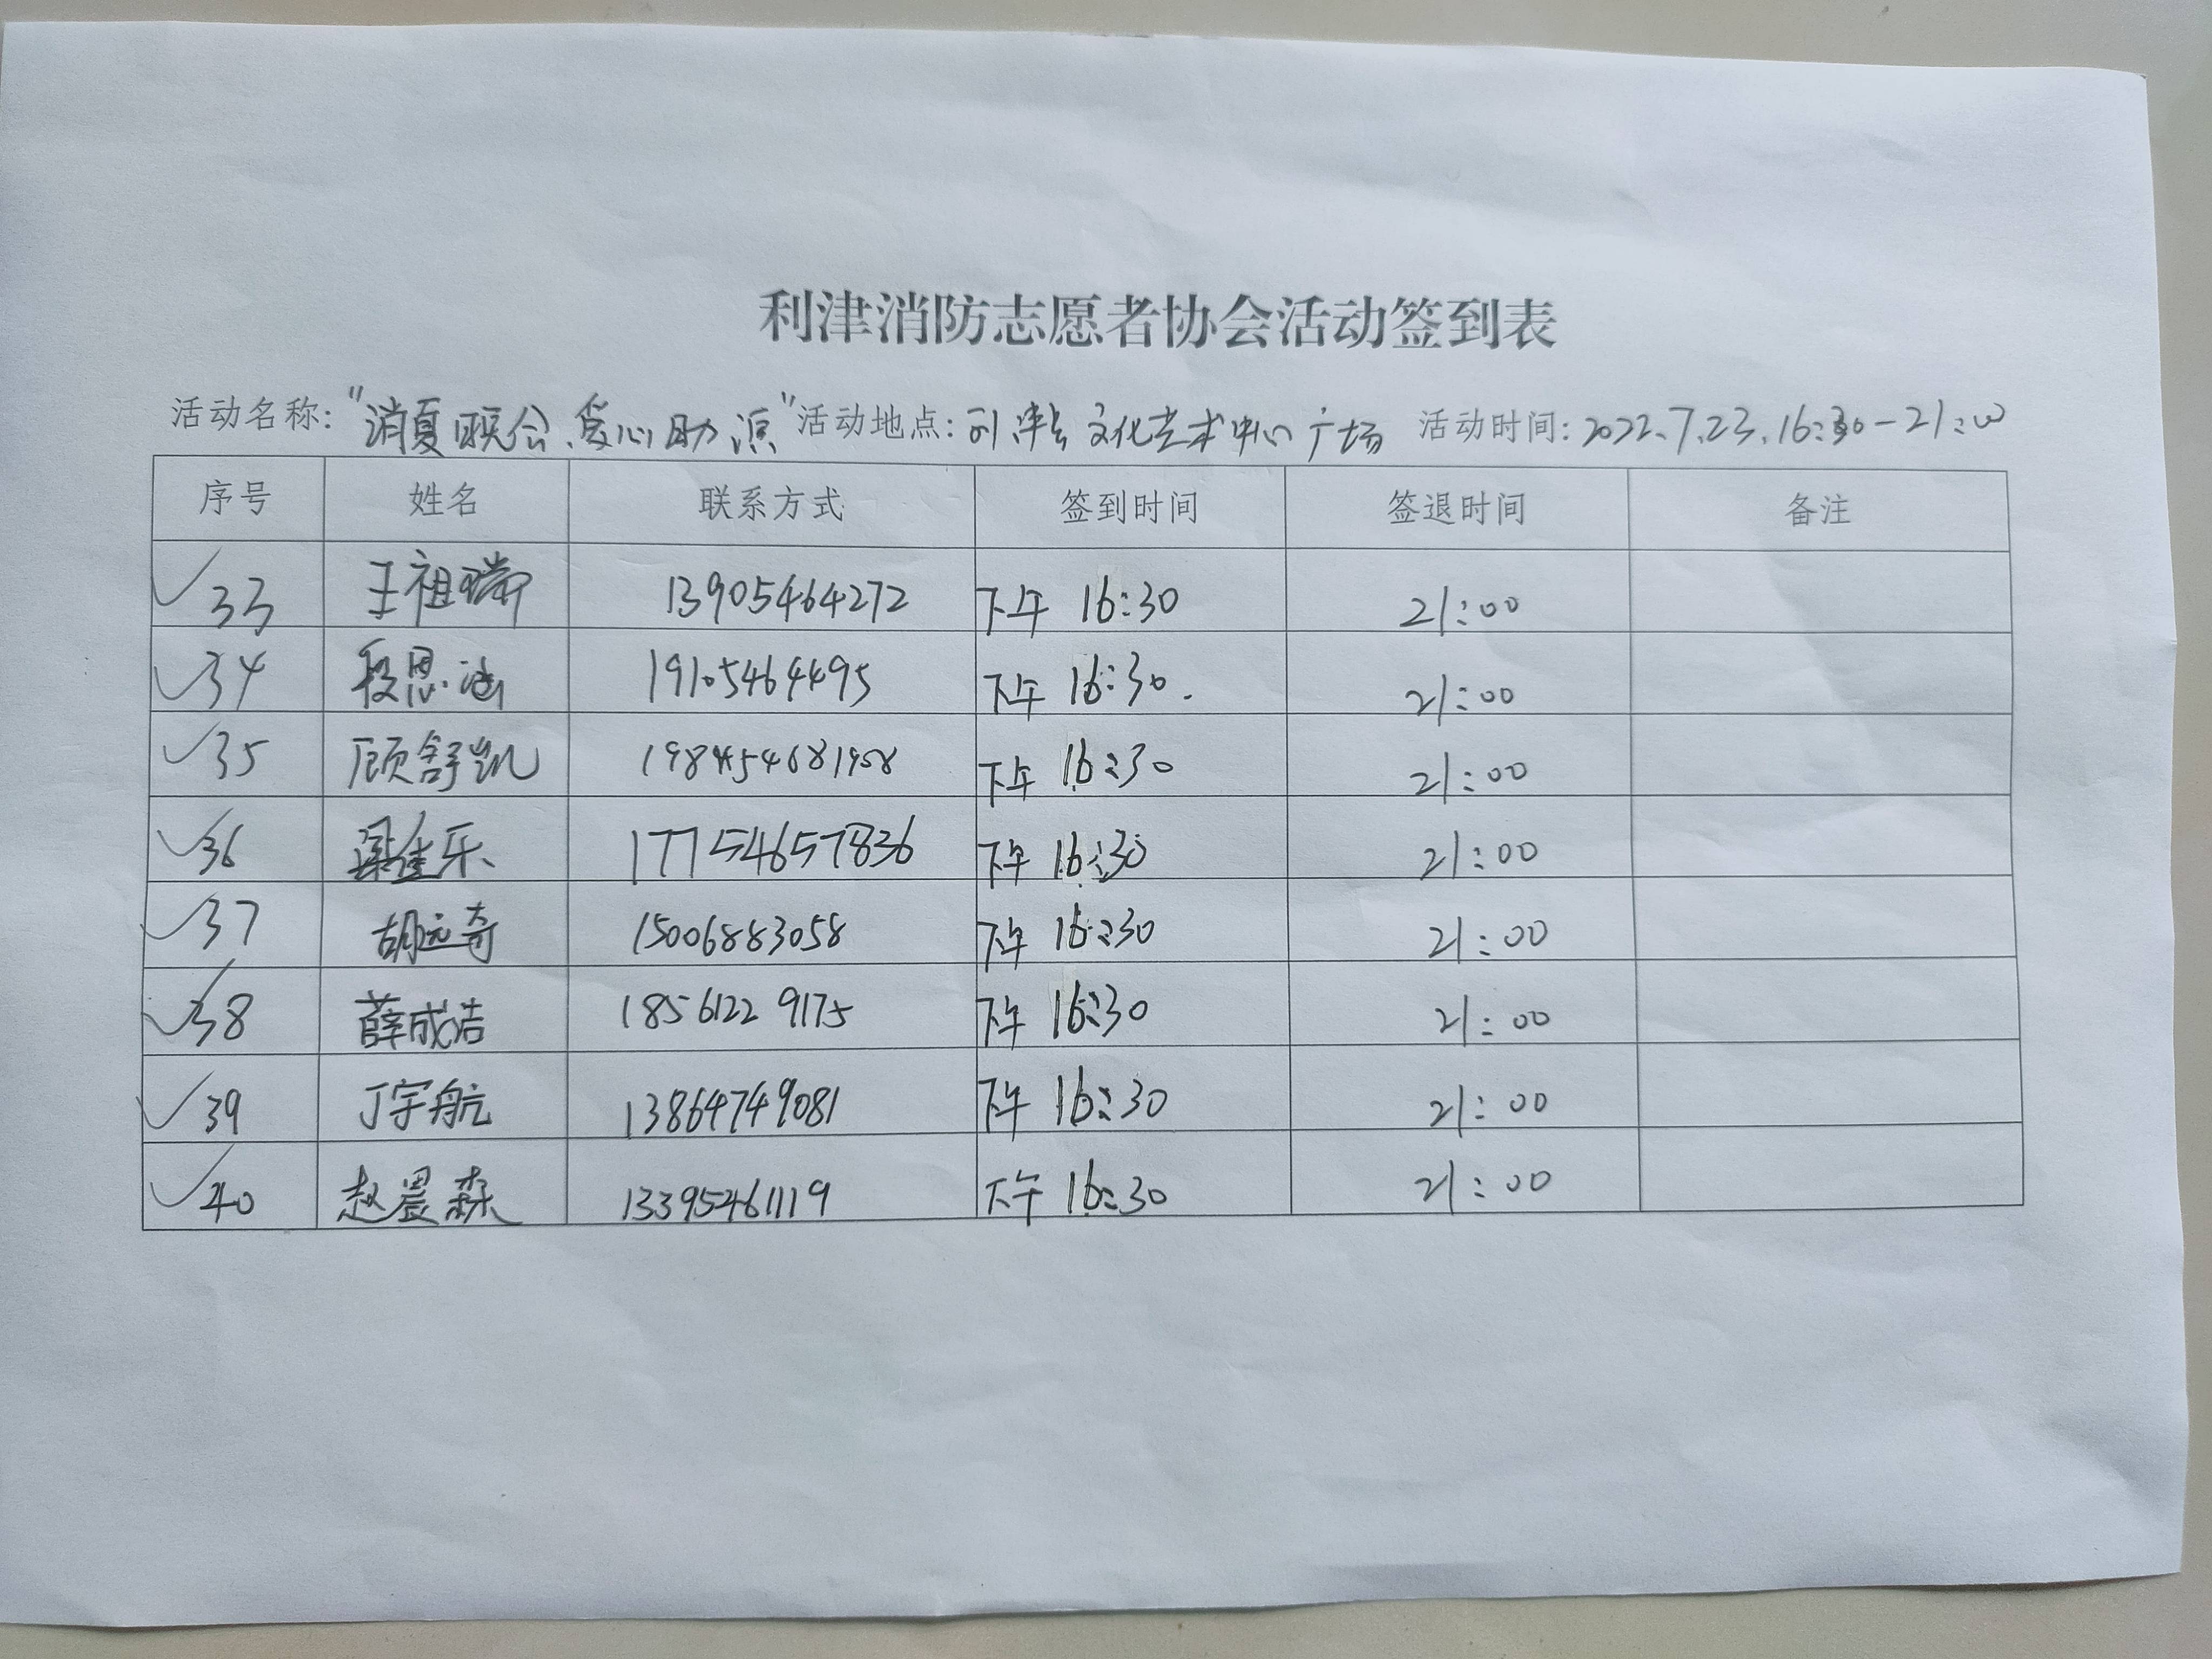 利津消防志愿者协会活动签到表
活动名称:"消夏晚会、爱心助演"活动地点:利津县文化艺术中心广场 活动时间:2022.7.23.16:30-21:00
序号 姓名 联系方式 签到时间 签退时间 备注
33 王祖瑞 13905464272 下午 16:30 21:00
34 段恩涵 19105464495 下午 16:30. 21:00
35 顾舒凯 下午 16:30 21:00
36 梁佳乐 17754657836 下午 16:30 21:00
37 胡远奇 15006883058 下午 16:30 21:00
38 薛成浩 18561229175 下午 16:30 21:00
39 丁宇航 13864749081 下午 16:30 21:00
40 赵晨森 13395461119 下午 16:30 21:00